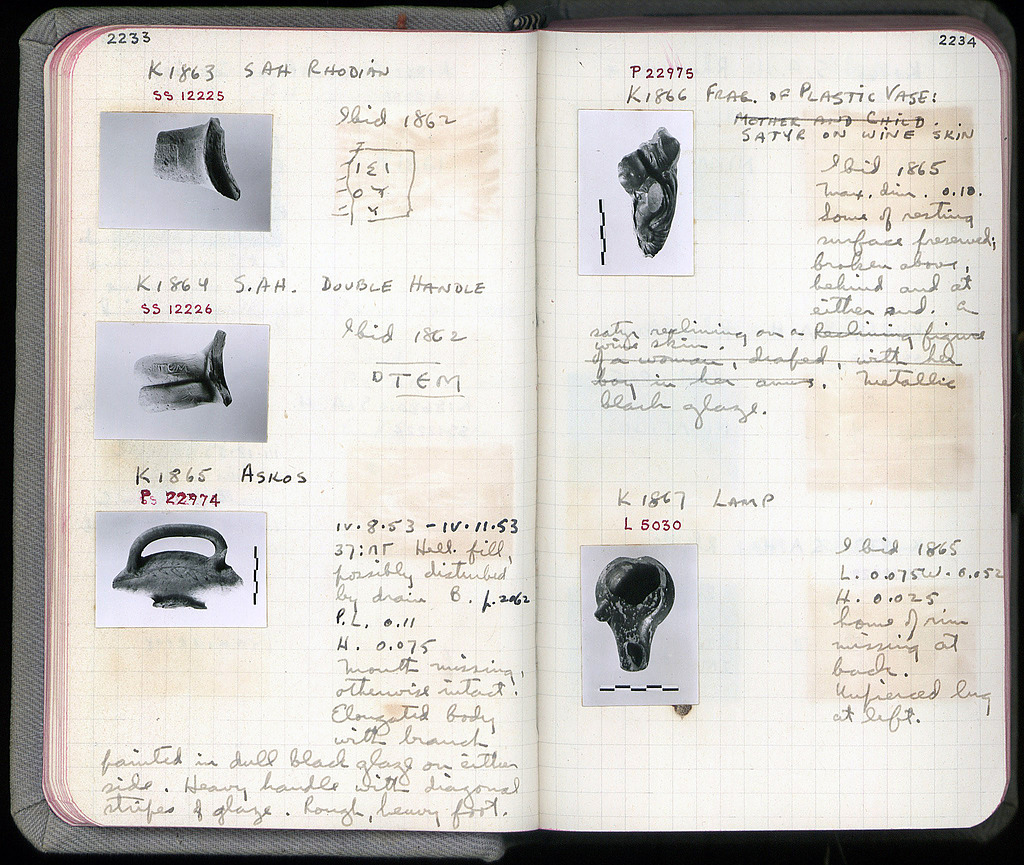 2233
K1863 SAH RHODIAN
SS 12225
Ibid 1862
K1864 S.AH. DOUBLE HANDLE
SS 12226
Ibid 1862
DTEM
K1865 ASKOS
P 22974
IV.8.53 - IV.11.53
Hell. fill,
possibly disturbed
by drain B. p.2062
P.L. 0.11
H. 0.075
Mouth missing,
otherwise intact.
Elongated body
with branch
painted in dull black glaze on either
side. Heavy handle with diagonal
stripes of glaze. Rough, heavy foot.
2234
P 22975
K1866 FRAG. OF PLASTIC VASE:
MOTHER AND CHILD.
SATYR ON WINE SKIN
Ibid 1865
Max. dim. 0.10.
Some of resting
surface preserved;
broken above,
behind and at
either end. A
satyr reclining on a Reclining figure
wine skin.
of a woman, draped, with
boy in her arms. Metallic
black glaze.
K 1867 LAMP
L 5030
Ibid 1865
L. 0.075 W. 0.052
H. 0.025
of rim
missing at
back.
Unpierced lug
at left.